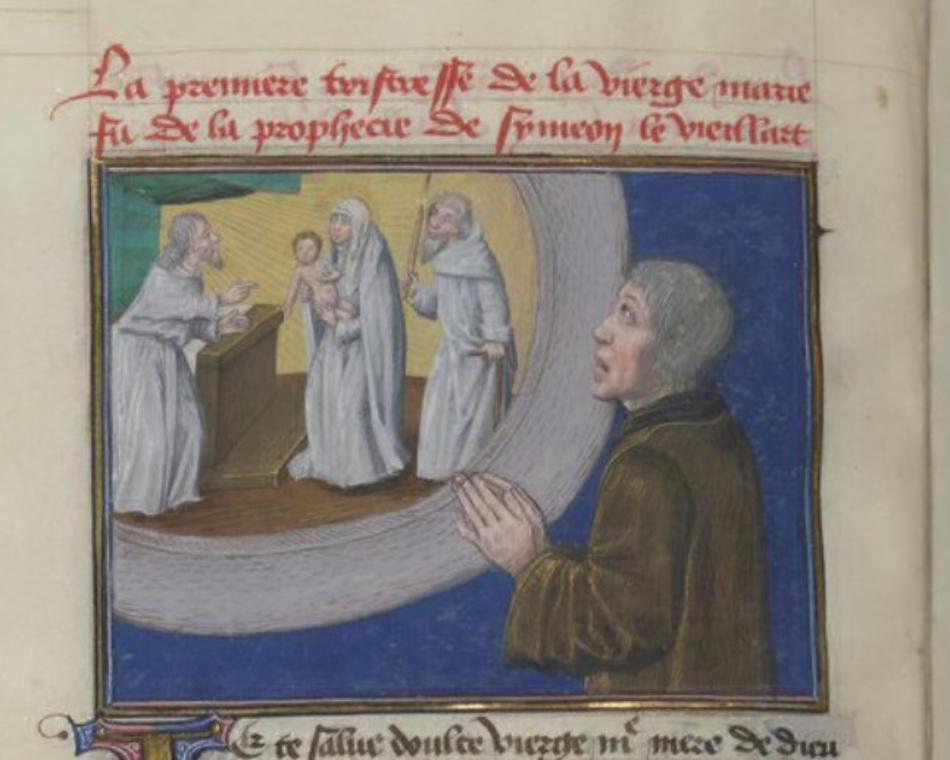 La premiere tristresse de la vierge marie
fu de la prophecie de symeon le vieillart
Ie te salue doulce vierge mʳe mere de dieu